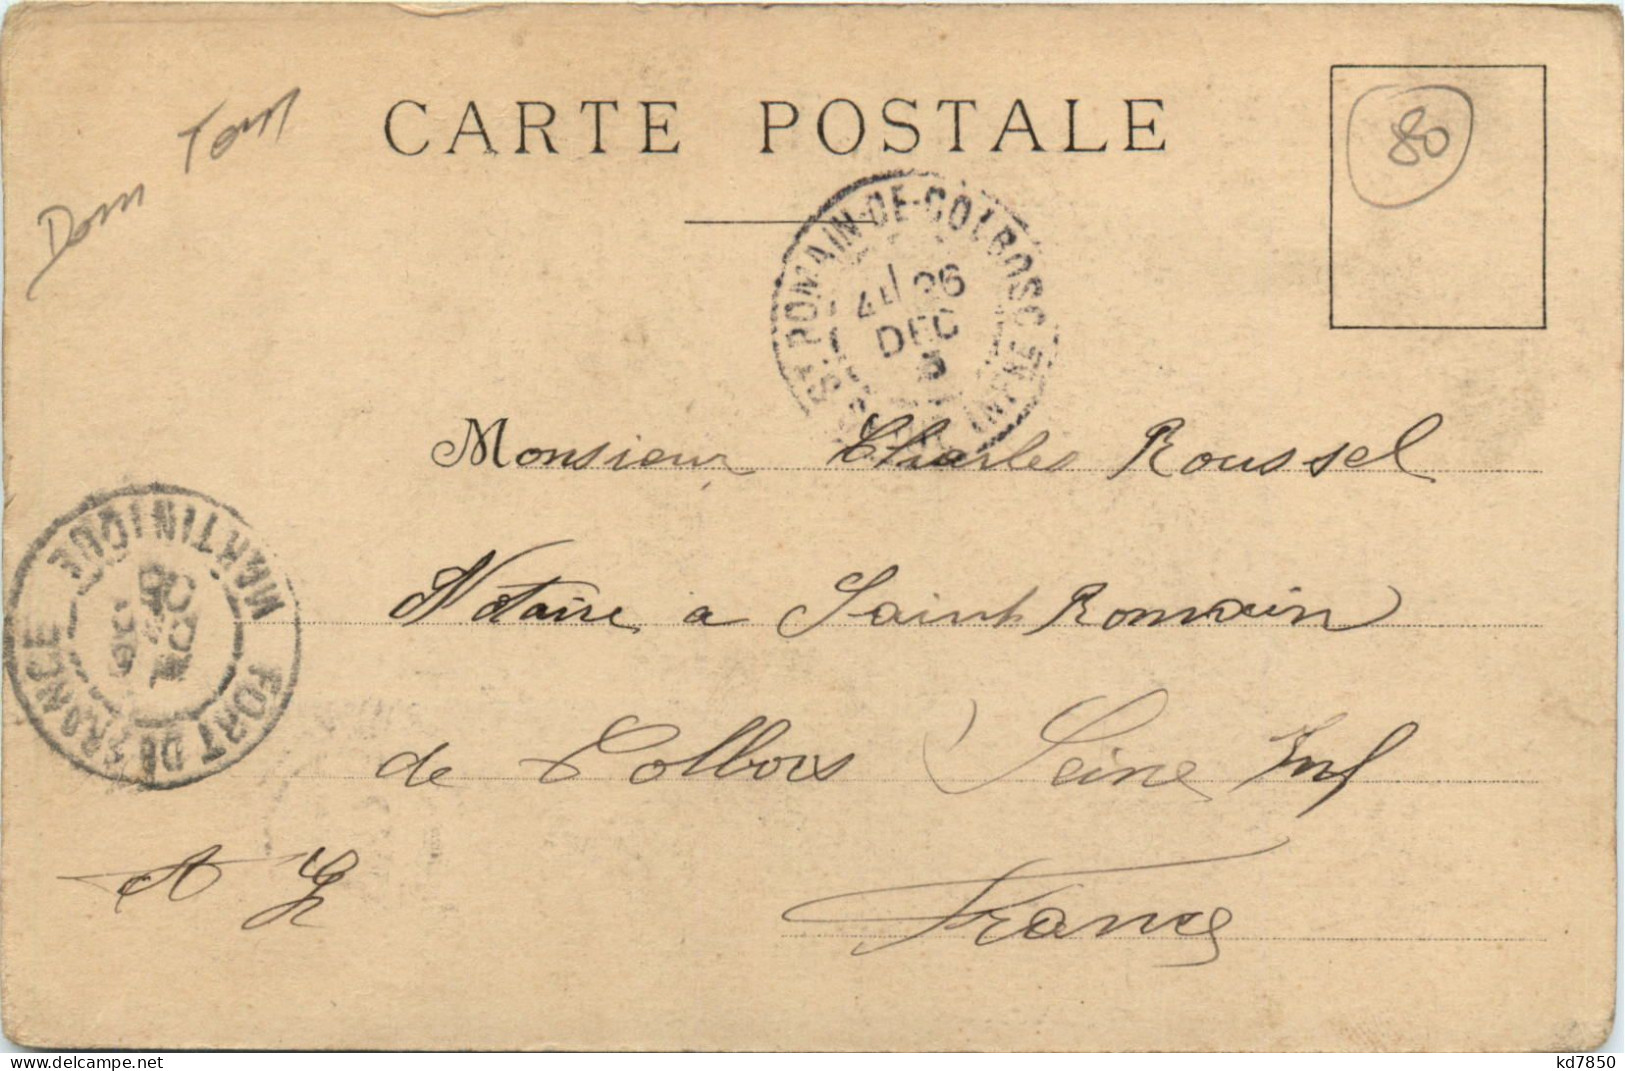 Dom Tom
CARTE POSTALE
80
ST ROMAIN-DE-COLBOSC
26
DEC
INFRE
Monsieur Charles Roussel
MARTINIQUE
FORT DE FRANCE
06
Notaire a Saint Romain
de Colbosc Seine Inf
France
delcampe.net
kd7850